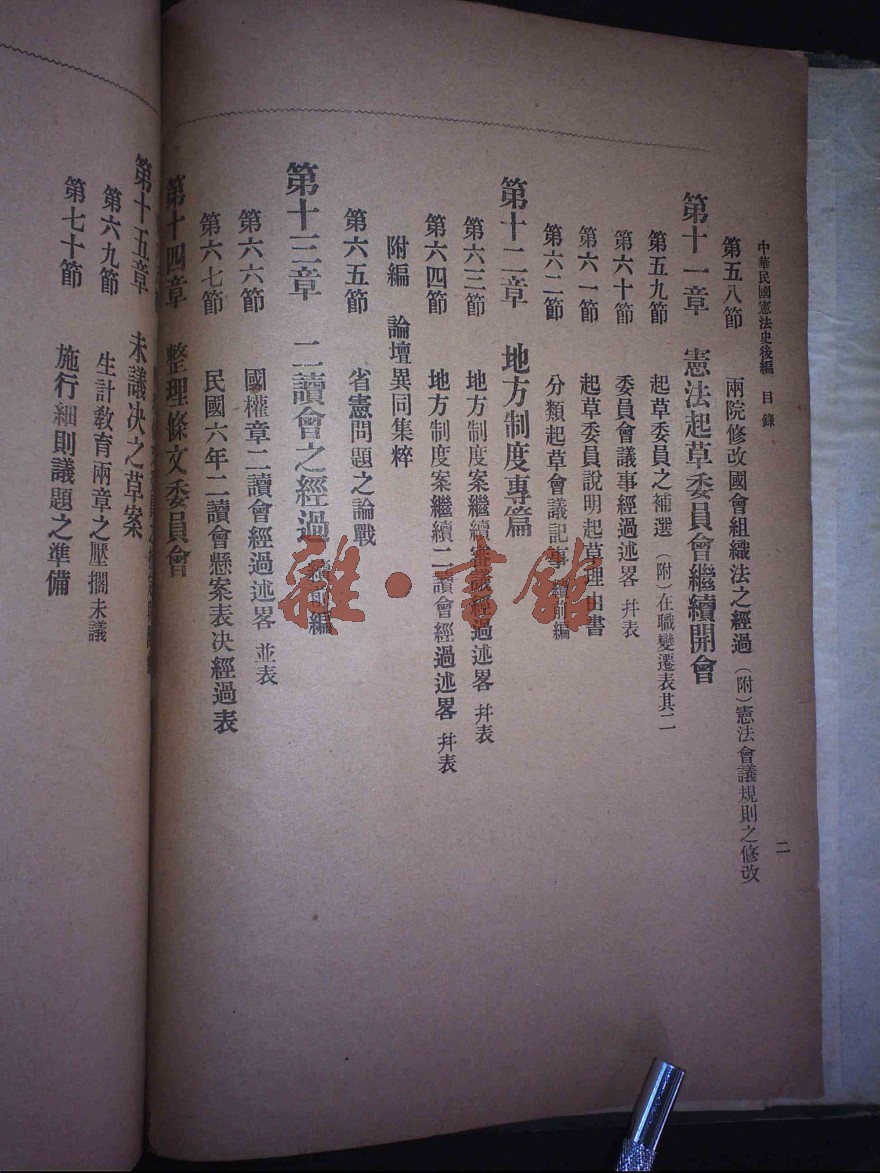 中華民國憲法史後編 目錄
二
第五八節 兩院修改國會組織法之經過（附）憲法會議規則之修改
第十一章 憲法起草委員會繼續開會
第五九節 起草委員之補選（附）在職變遷表其二
第六十節 委員會議事經過述畧 幷表
第六一節 起草委員說明起草理由書
第六二節 分類起草會議記事 續前編
第十二章 地方制度專篇
第六三節 地方制度案繼續審議經過述畧 幷表
第六四節 地方制度案繼續二讀會經過述畧 幷表
附編 論壇異同集粹
第六五節 省憲問題之論戰
第十三章 二讀會之經過 續前編
第六六節 國權章二讀會經過述畧 並表
第六七節 民國六年二讀會懸案表决經過表
第十四章 整理條文委員會
第十五章 未議决之草案
第六九節 生計教育兩章之壓擱未議
第七十節 施行細則議題之準備
雜·書館